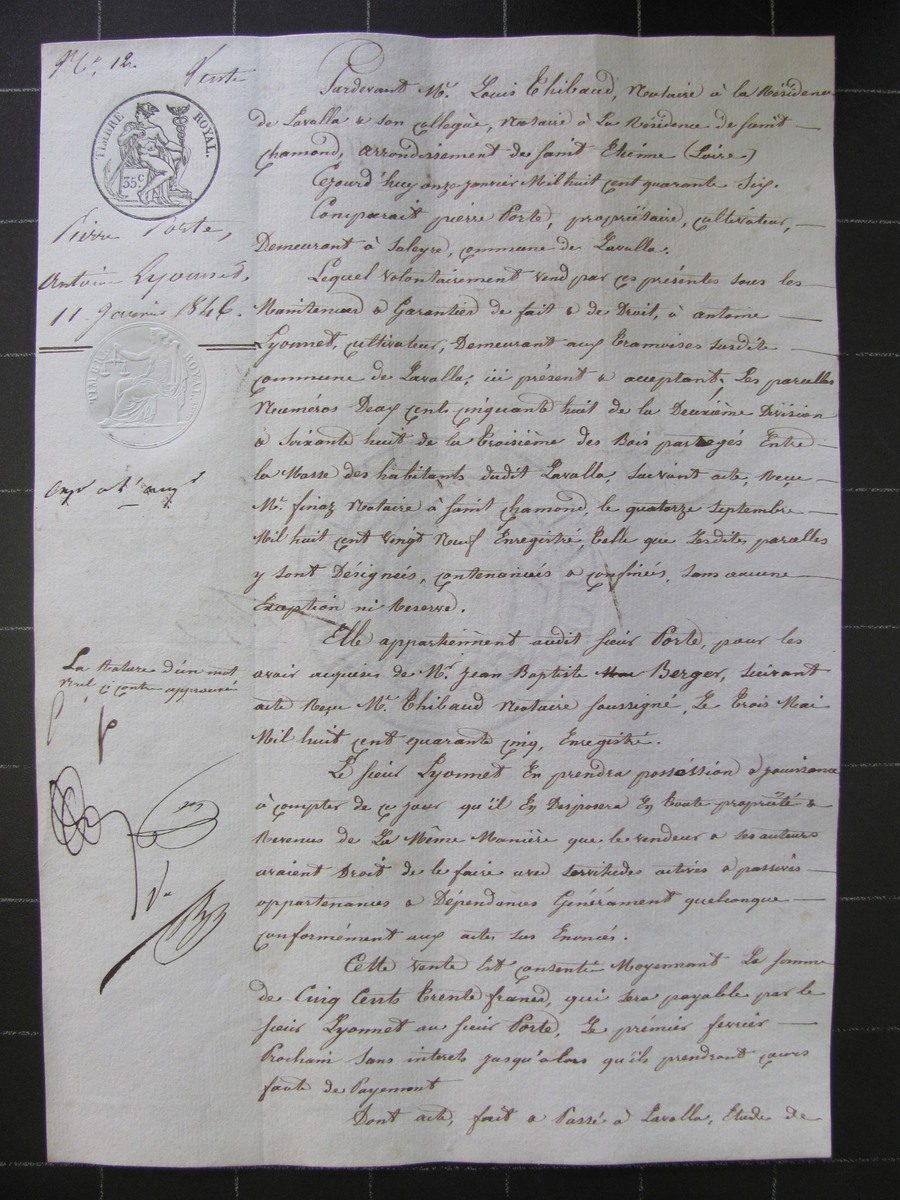 N.º 12.
Vente
TIMBRE ROYAL.
35 c
Pierre Porte,
Antoine Lyonnet,
11 Janvier 1846.
TIMBRE ROYAL
La Rature d'un mot
nul ci contre approuvé
Pardevant Me. Louis Thibaud, Notaire à la Résidence
de Lavalla & son collegue, Notaire à La Résidence de saint
chamond, arrondissement de saint Etienne (Loire)
Cejourd'huy onze janvier Mil huit cent quarante Six.
Comparait pierre Porte, propriétaire, cultivateur,
Demeurant à Saleyre, commune de Lavalla.
Lequel volontairement vend par ces présentes sous les
Maintenues & Garanties de fait & de Droit, à antoine
Lyonnet, cultivateur, Demeurant aux Tramoises susdite
commune de Lavalla, ici présent & acceptant, Les parcelles
Numéros Deux cents cinquante huit de la Deuxième Division
& Soixante huit de la troisième des Bois partagés Entre
la Masse des habitants dudit Lavalla, suivant acte Reçu
Me. finaz Notaire à saint chamond, le quatorze septembre
Mil huit cent vingt Neuf Enregistré, Telle que Lesdites parcelles
y sont Désignées, contenancées & confinées, sans aucune
Exception ni Reserve.
Elle appartiennent audit sieur Porte, pour les
avoir acquises de Mr. Jean Baptiste Berger, suivant
acte Reçu Me. Thibaud Notaire soussigné, Le Trois Mai
Mil huit cent quarante cinq, Enregistré.
Le sieur Lyonnet En prendra posséssion & jouissance
à compter de ce jour qu'il En Disposera En toute propriété &
Revenus de La Même Manière que le vendeur & ses auteurs
avaient Droit de le faire avec servitudes actives & passives
appartenances & Dépendances Générament quelconque
conformément aux actes sus Enoncés.
Cette vente Est consentie Moyennant Le somme
de Cinq Cents Trente francs, qui sera payable par le
sieur Lyonnet au sieur Porte, Le prémier fevrier
Prochain sans interets jusqu'alors qu'ils prendront cours
faute de Payement
Dont acte, fait & Passé à Lavalla, Etude de